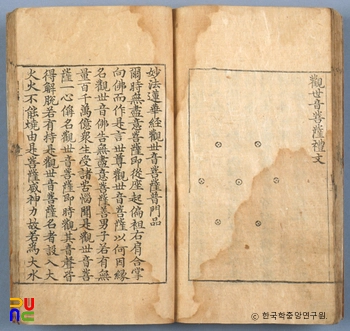 觀世音菩薩禮文
妙法蓮華經觀世音菩薩普門品
爾時無盡意菩薩即從座起偏袒右肩合掌
向佛而作是言世尊觀世音菩薩以何因緣
名觀世音佛告無盡意菩薩善男子若有無
量百千萬億衆生受諸苦惱聞是觀世音菩
薩一心稱名觀世音菩薩即時觀其音聲皆
得解脫若有持是觀世音菩薩名者設入大
火火不能燒由是菩薩威神力故若為大水
© 한국학중앙연구원